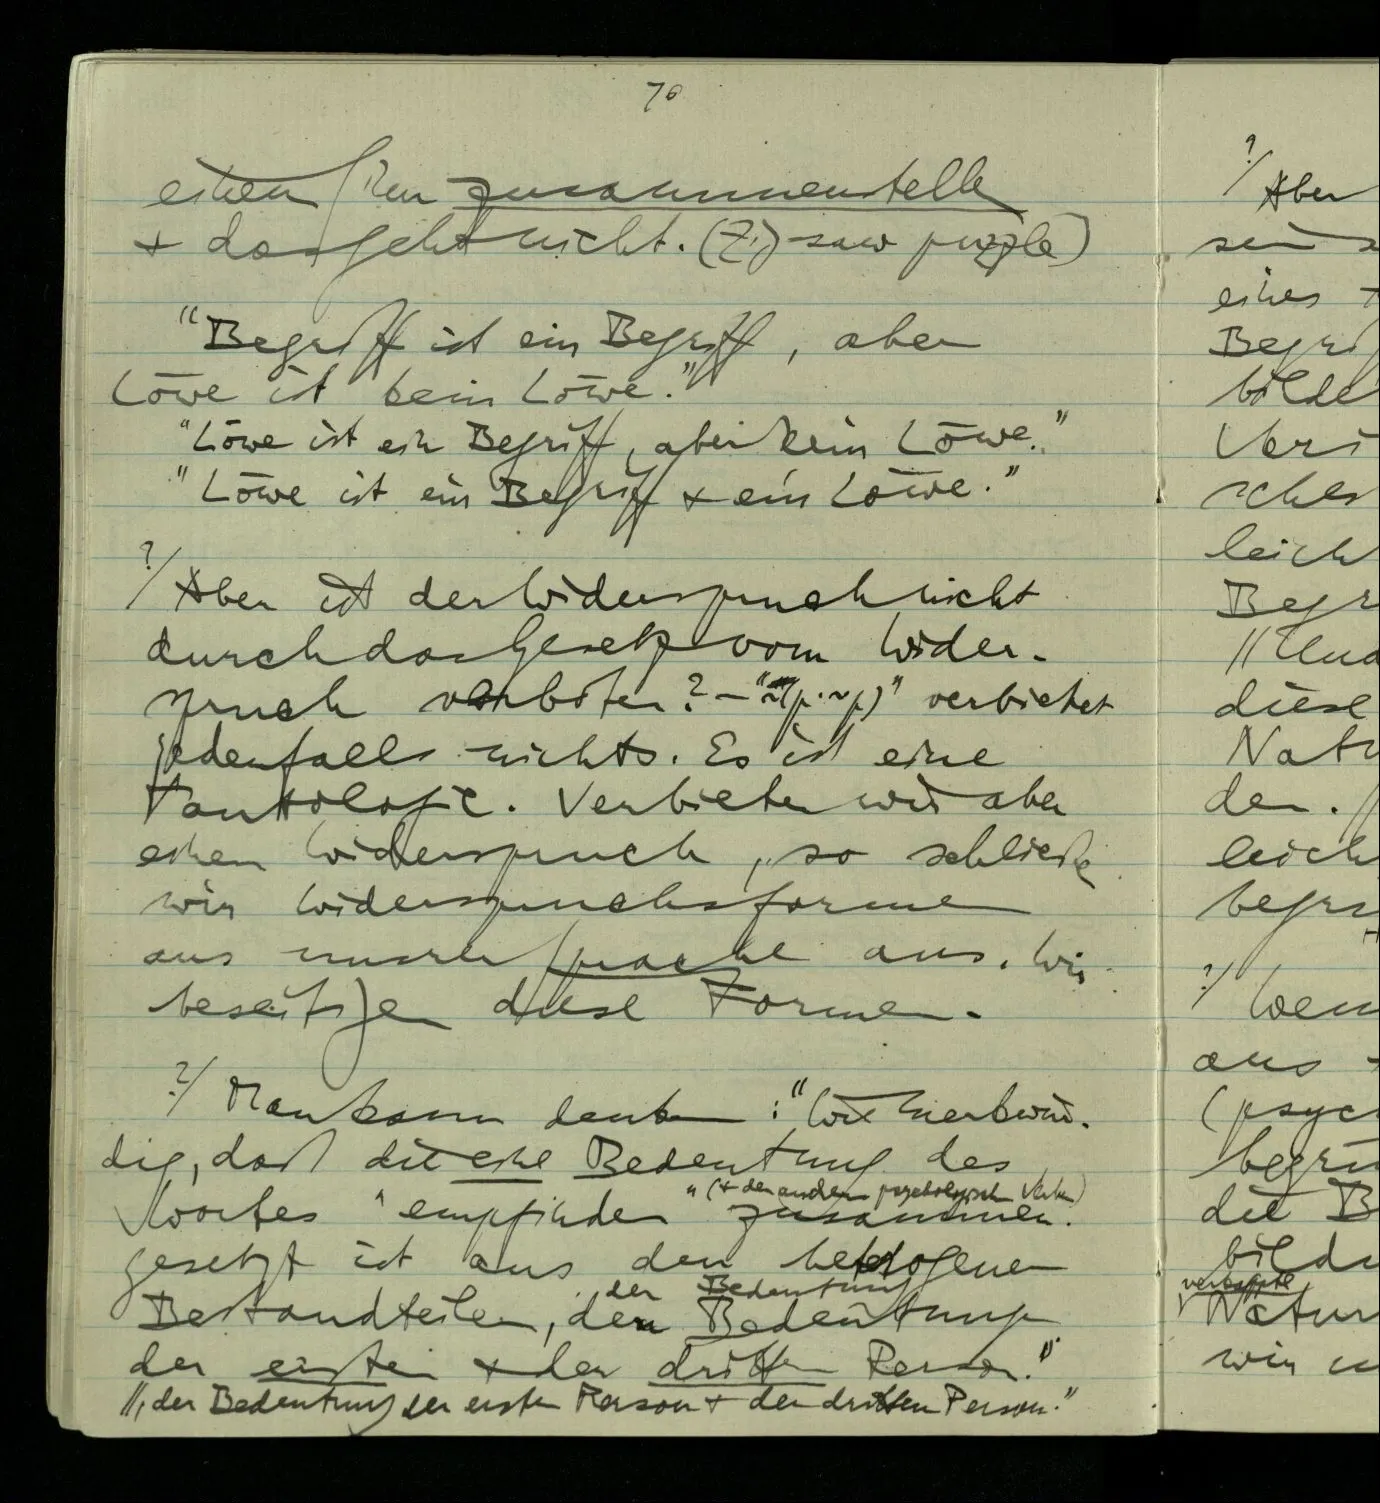 70
einen Sinn zusammenstellen
+ das geht nicht. (Jig-saw puzzle)
"Begriff ist ein Begriff, aber
Löwe ist kein Löwe."
"Löwe ist ein Begriff, aber kein Löwe."
"Löwe ist ein Begriff + ein Löwe."
?/ Aber ist der Widerspruch nicht
durch das Gesetz vom Wider-
spruch verboten? – "~(p.~p)" verbietet
jedenfalls nichts. Es ist eine
Tautologie. Verbieten wir aber
einen Widerspruch, so schließen
wir Widerspruchsformen
aus unserer Sprache aus. Wir
beseitigen diese Formen.
?/ Man kann denken: "Wie merkwür-
dig, daß die eine Bedeutung des
(+ der andern psychologischen Verben)
Wortes 'empfinden' zusammen-
gesetzt ist aus den heterogenen
der Bedeutung
Bestandteilen, den Bedeutungen
der ersten + der dritten Person."
//, der Bedeutung der ersten Person + der dritten Person."
?/ Aber
sein
eines
bilde
leich
diese
Natu
den. //
leich
aus
(psyc
die B
verkappte
Natur
wir